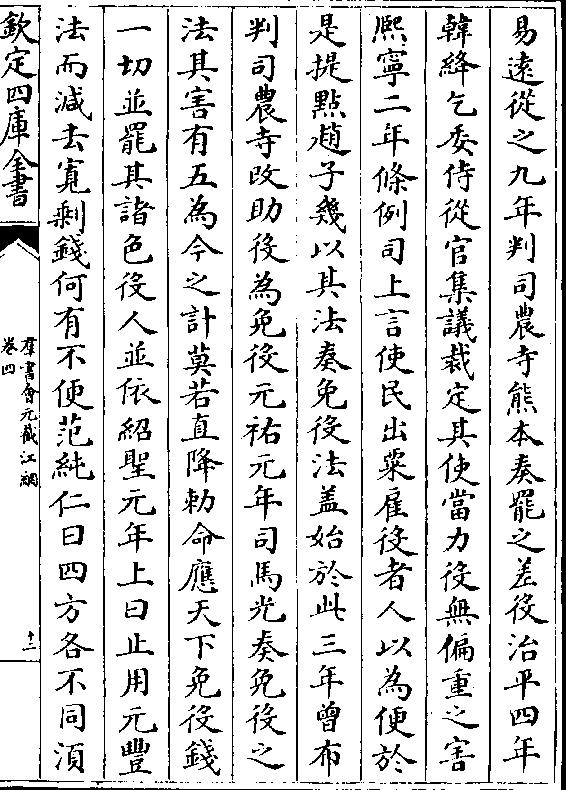 易遠從之九年判司農寺熊本奏罷之差役治平四年
韓絳乞委侍從官集議裁定其使當力役無偏重之害
熈寧二年條例司上言使民出粟雇役者人以為便於
是提㸃趙子幾以其法奏免役法盖始於此三年曾布
判司農寺改助役為免役元祐元年司馬光奏免役之
法其害有五為今之計莫若直降勅命應天下免役錢
一切並罷其諸色役人並依紹聖元年上曰止用元豐
法而減去寛剰錢何有不便范純仁曰四方各不同湏
欽定四庫全書
羣書會元截江網
卷四
十二